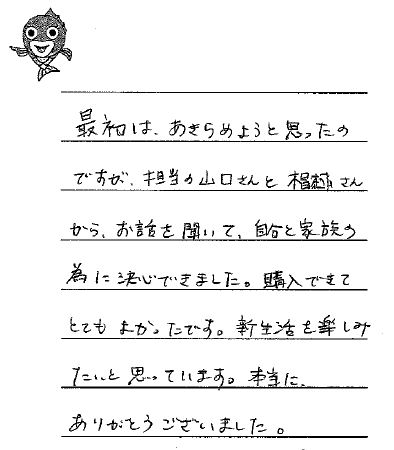 最初は、あきらめようと思ったの
ですが、担当の山口さんと さん
から、お話を聞いて、自分と家族の
為に決心できました。購入できて
とてもよかったです。新生活を楽しみ
たいと思っています。本当に、
ありがとうございました。